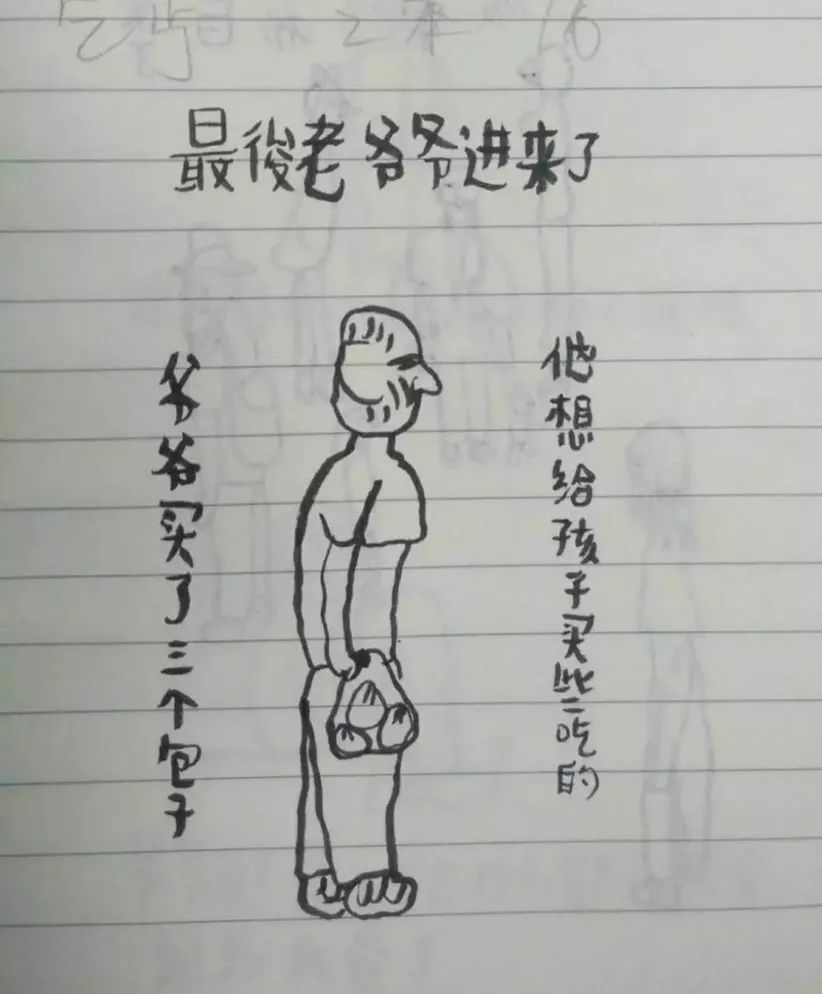 最後老爷爷进来了
爷爷买了三个包子
他想给孩子买些吃的